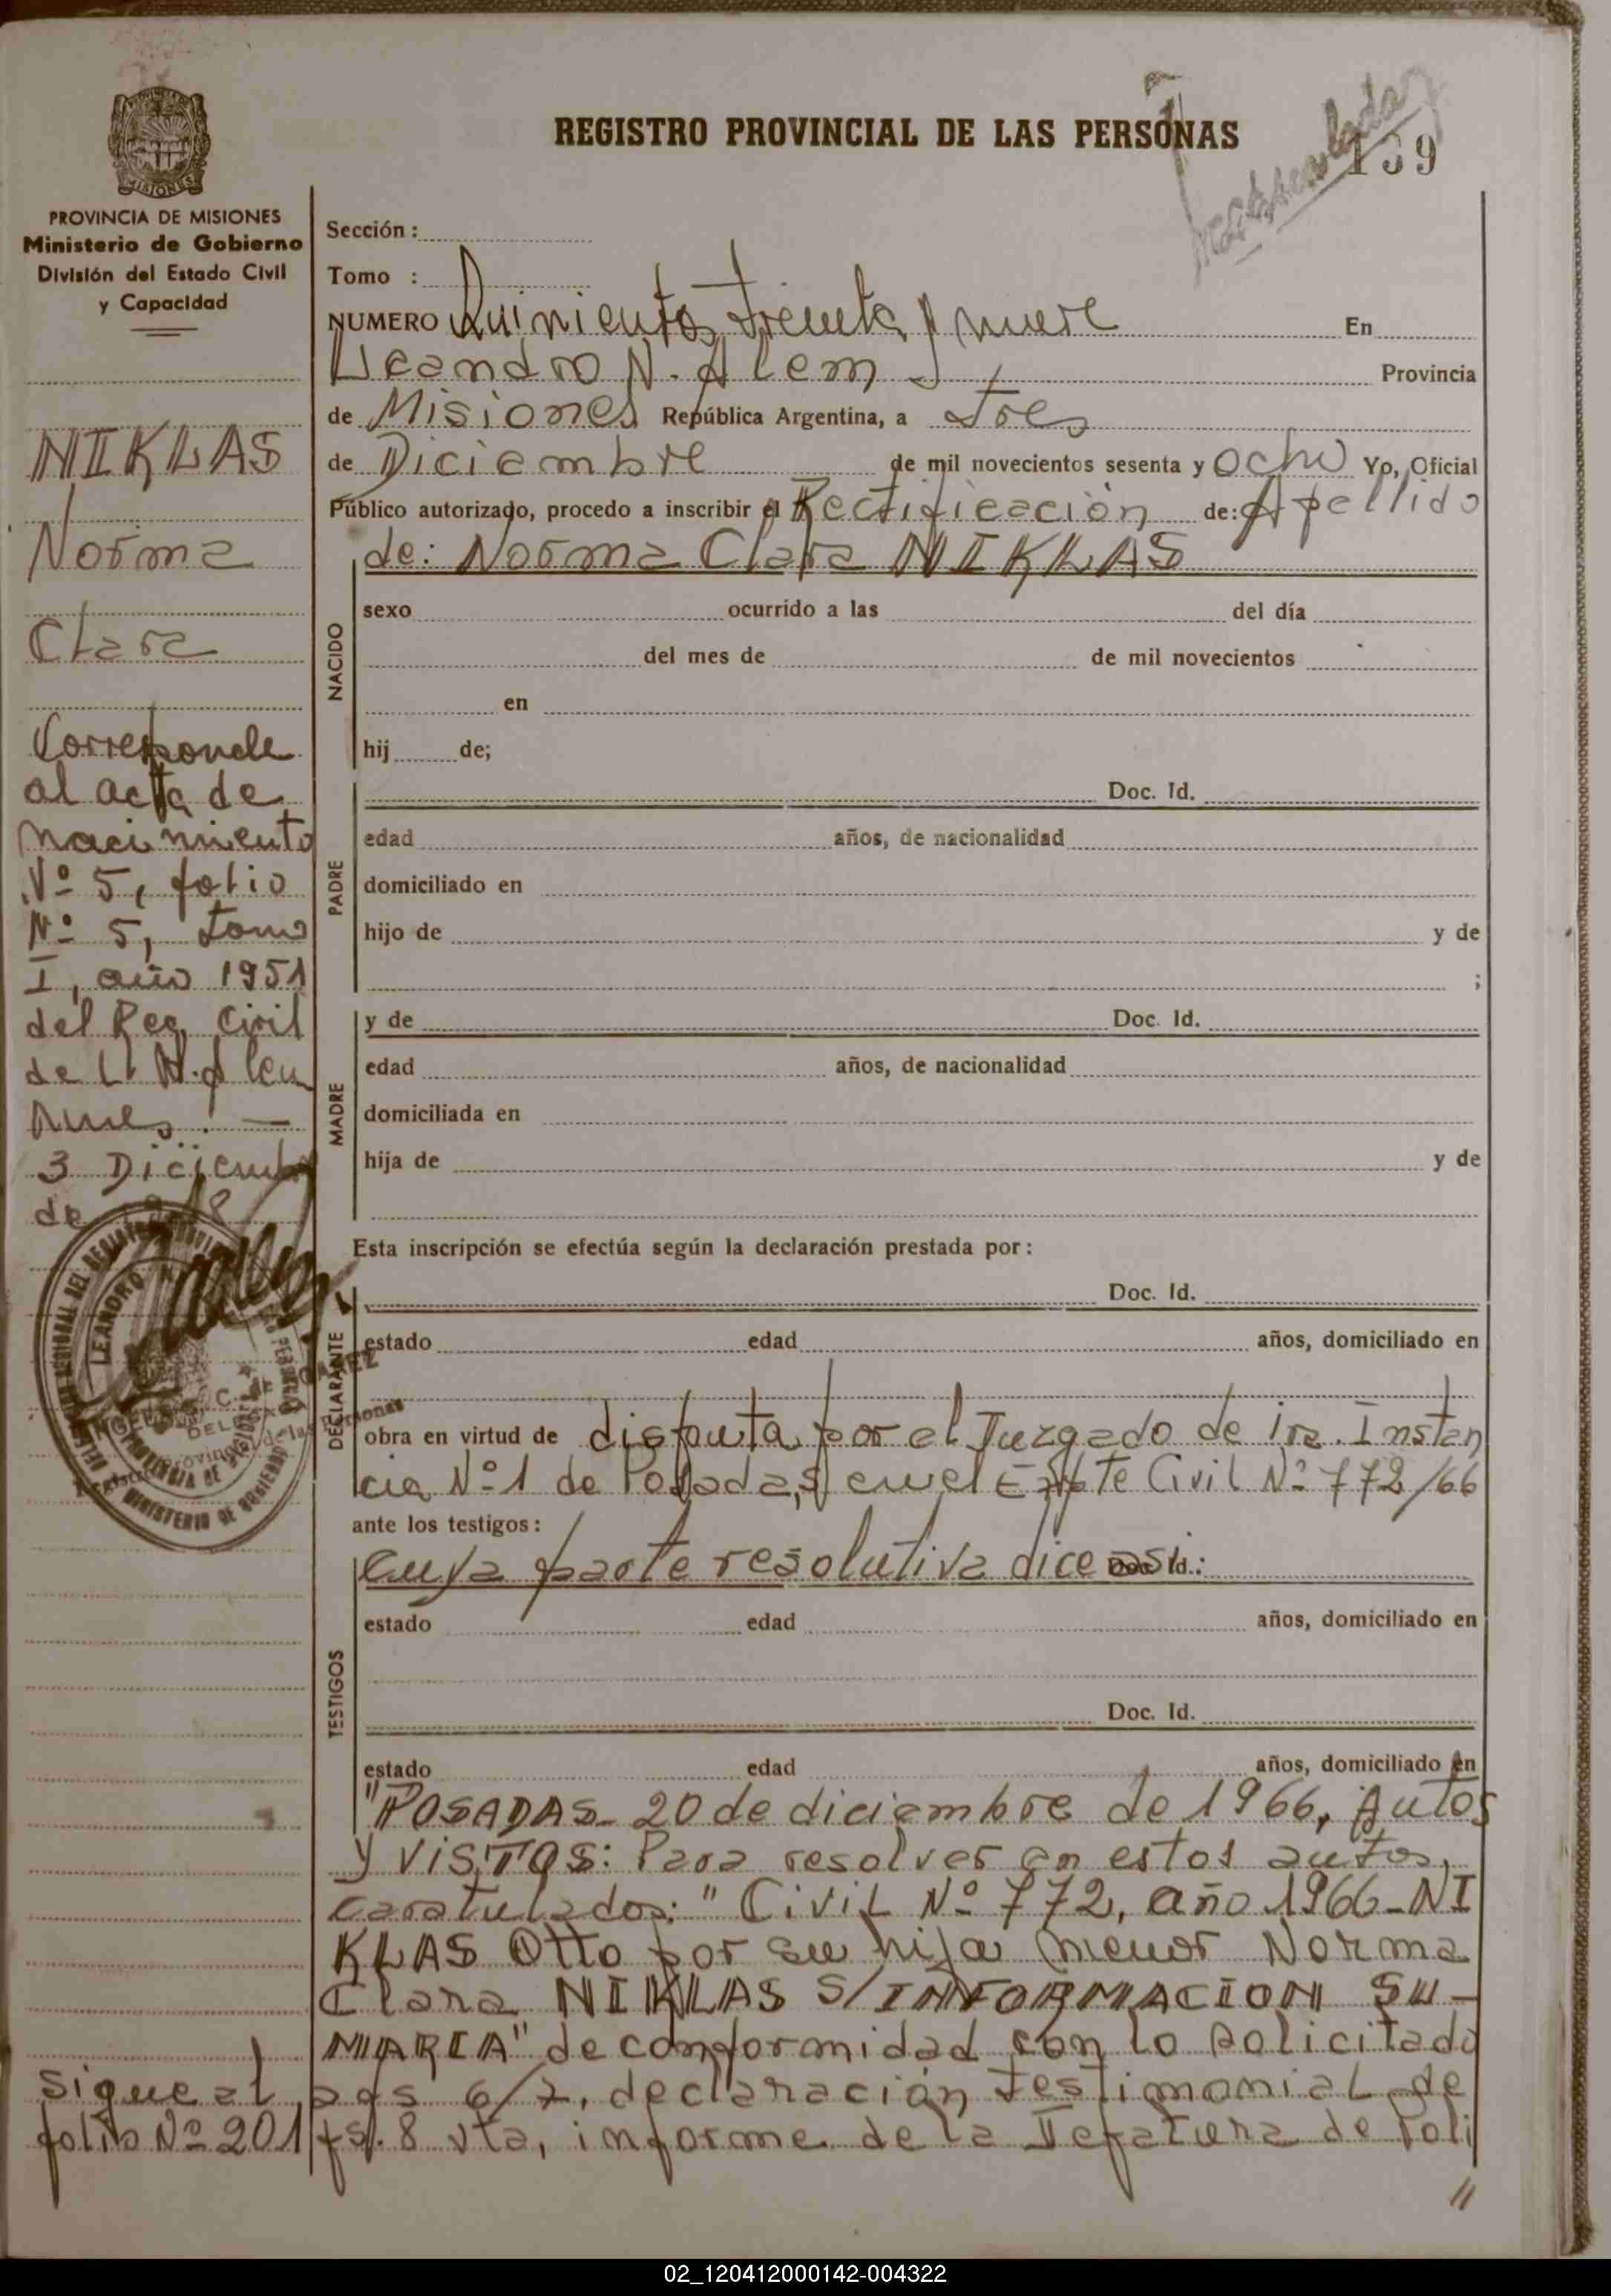 REGISTRO PROVINCIAL DE LAS PERSONAS
139
PROVINCIA DE MISIONES
Ministerio de Gobierno
División del Estado Civil
y Capacidad
NIKLAS
Norma
Clara
Corresponde
al acta de
nacimiento
Nº 5, folio
Nº 5, tomo
I, año 1951
del Reg. Civil
de L. N. Alem
3 Diciembre
de
Sigue al
folio Nº 201
Sección :
Tomo :
NUMERO Quinientos treinta y nueve En
Leandro N. Alem Provincia
de Misiones República Argentina, a tres
de Diciembre de mil novecientos sesenta y ocho Yo, Oficial
Público autorizado, procedo a inscribir el Rectificación de: Apellido
de: Norma Clara NIKLAS
NACIDO
sexo ocurrido a las del día
del mes de de mil novecientos
en
hij de;
Doc. Id.
PADRE
edad años, de nacionalidad
domiciliado en
hijo de y de
;
y de Doc. Id.
MADRE
edad años, de nacionalidad
domiciliada en
hija de y de
Esta inscripción se efectúa según la declaración prestada por :
Doc. Id.
DECLARANTE
estado edad años, domiciliado en
obra en virtud de dispuesta por el Juzgado de 1ra. Instan
cia Nº 1 de Posadas, en el Expte Civil Nº 772/66
ante los testigos :
cuya parte resolutiva dice asi: Doc. Id.
TESTIGOS
estado edad años, domiciliado en
Doc. Id.
estado edad años, domiciliado en
"POSADAS- 20 de diciembre de 1966, Autos
y VISTOS: Para resolver en estos autos,
caratulados: " Civil Nº 772, año 1966-NI
KLAS Otto por su hija menor Norma
Clara NIKLAS S/INFORMACION SU-
MARIA" de conformidad con lo solicitado
a fs 6/7, declaración testimonial de
fs. 8 vta, informe de la Jefatura de Poli
//
02_120412000142-004322